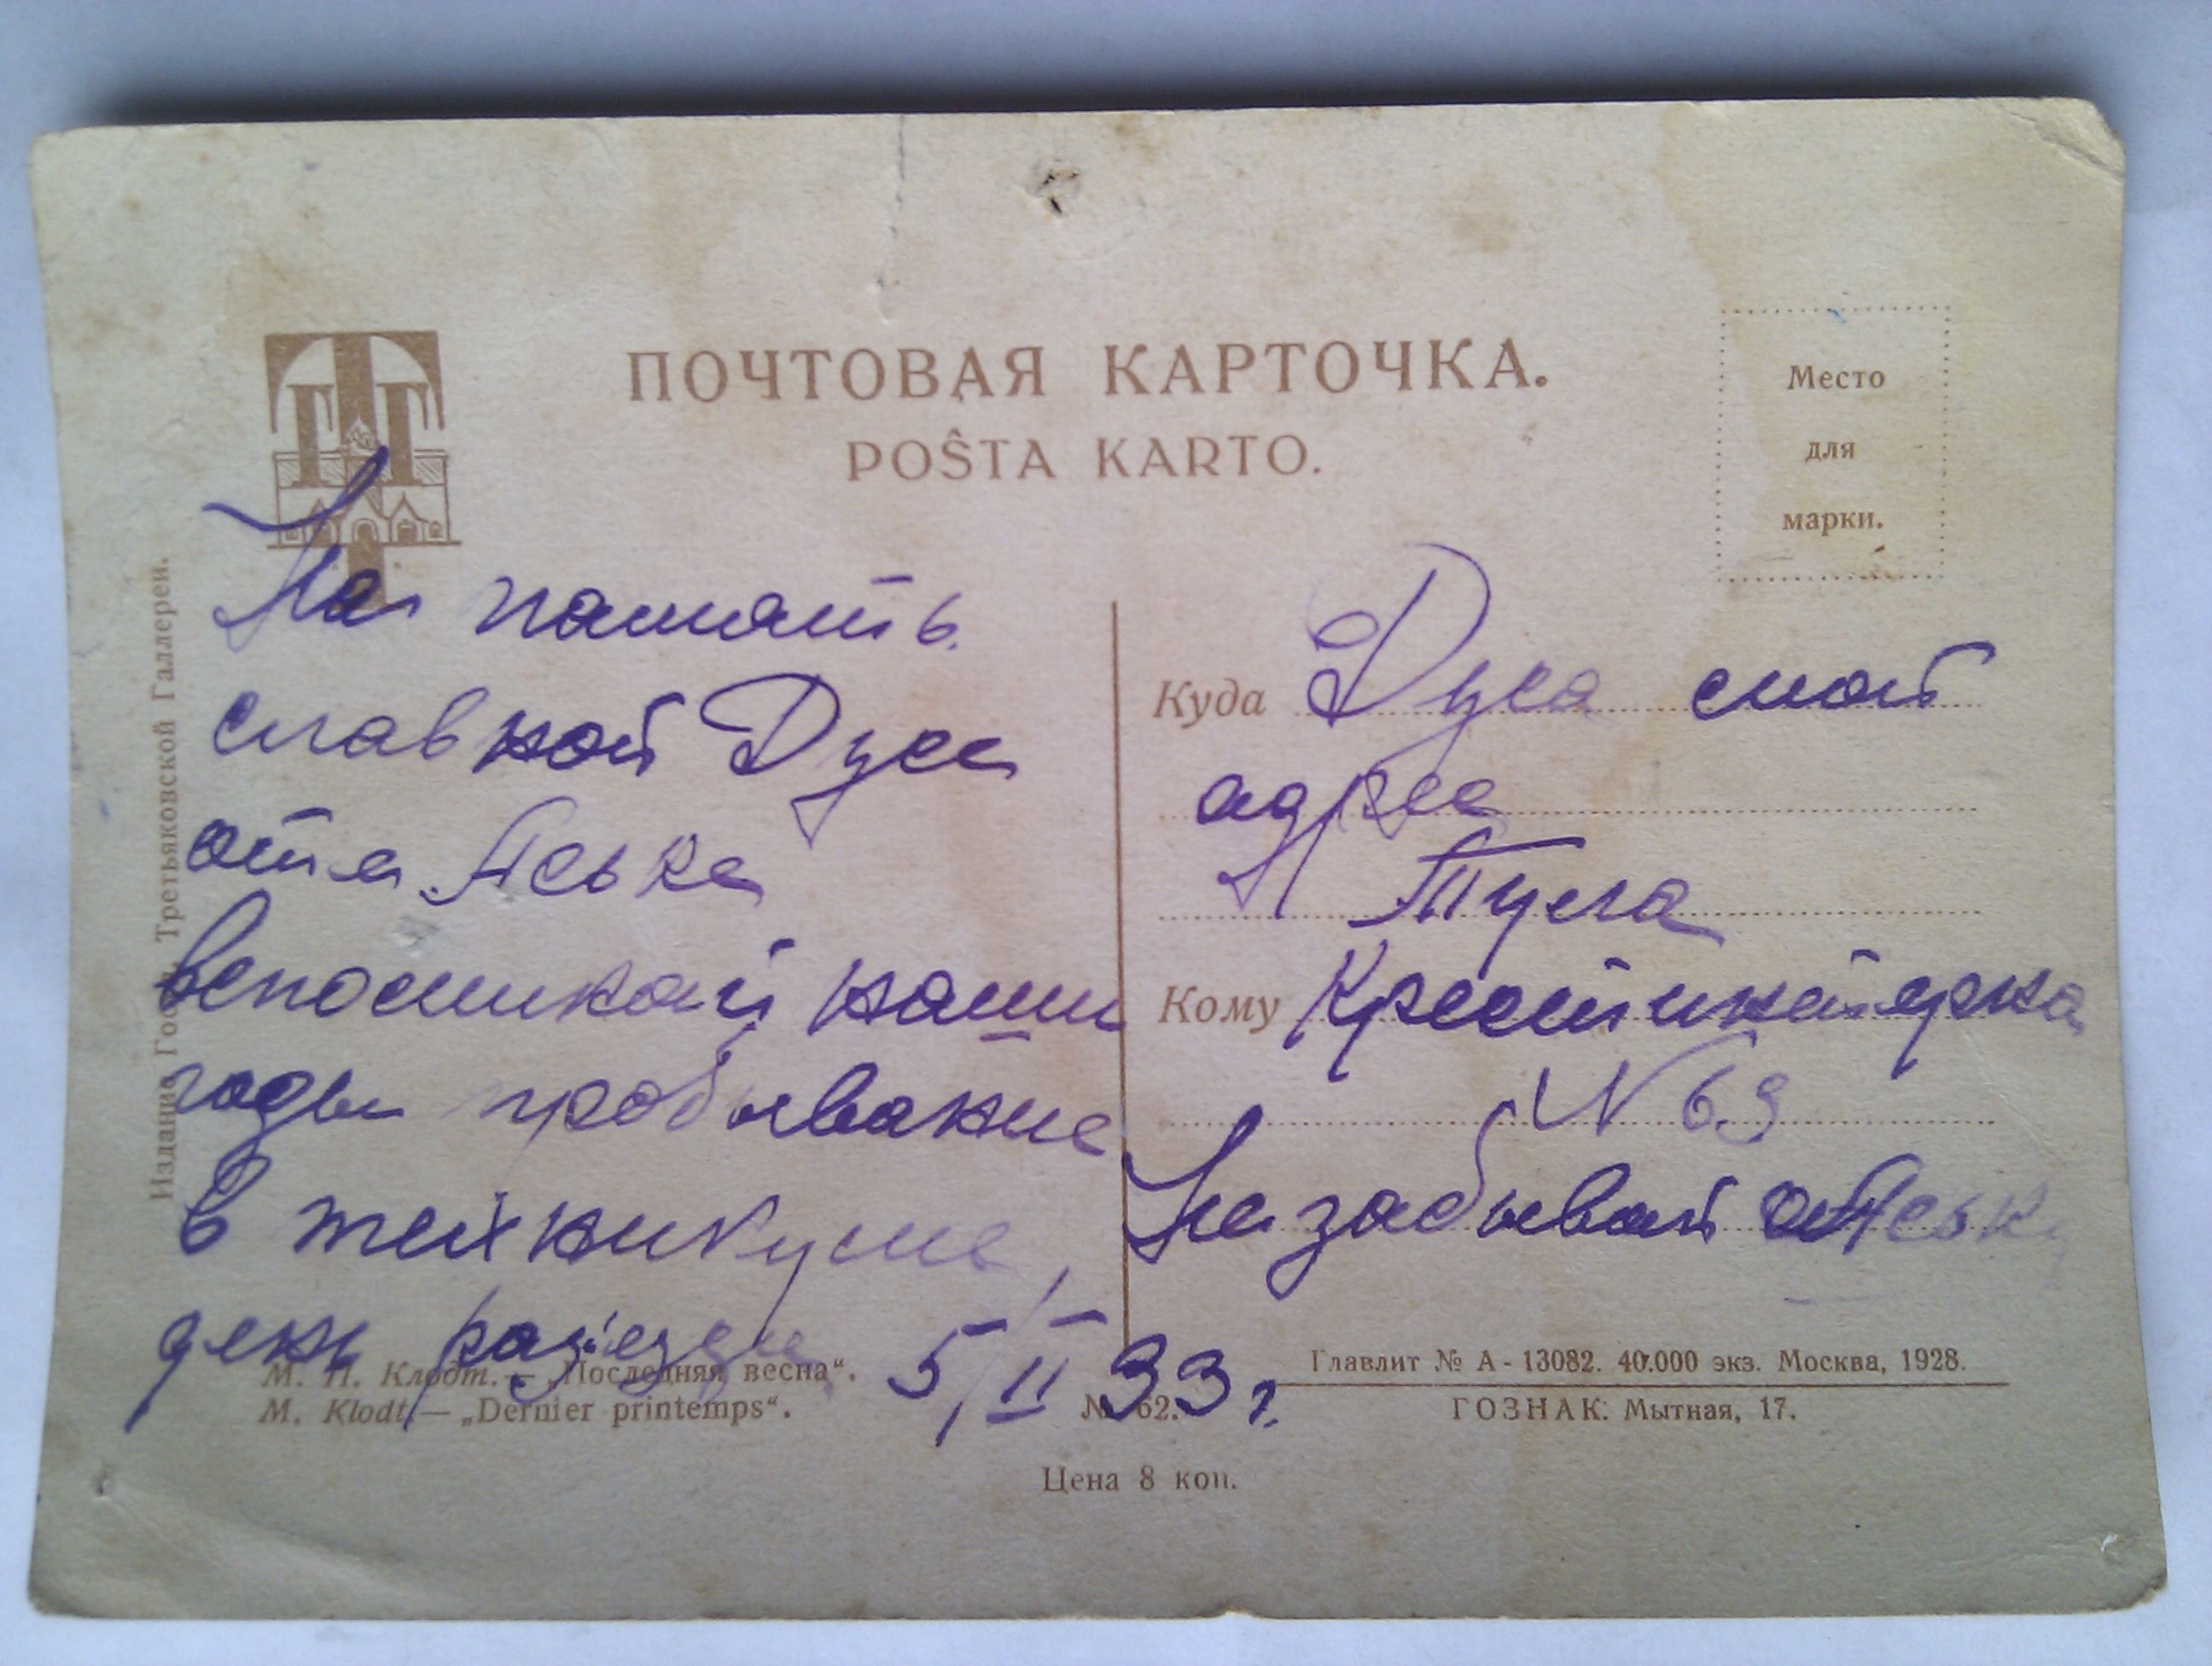 ПОЧТОВАЯ КАРТОЧКА.
POŜTA KARTO.
Место
для
марки.
ТГГ
Издание Гос. Третьяковской Галлереи.
На память
славной Дусе
от Аська
вспоминай наши
годы пробывание
в техникуме,
день разъезда 5/II 33 г.
Куда Дуся мой
адрес
Тула
Кому
N 69
Не забывай Аську
М. П. Клодт. — „Последняя весна“.
M. Klodt. — „Dernier printemps“.
№ 62.
Главлит № А - 13082. 40.000 экз. Москва, 1928.
ГОЗНАК. Мытная, 17.
Цена 8 коп.